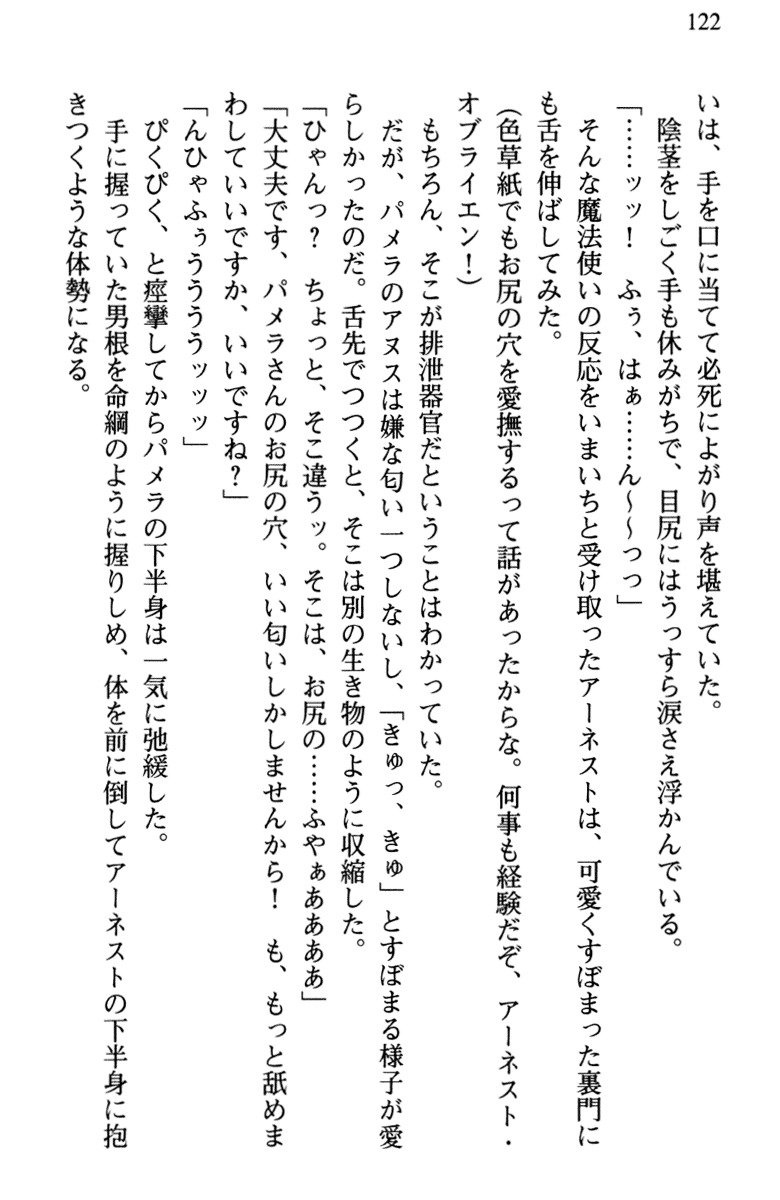 122
いは、手を口に当てて必死によがり声を堪えていた。
　陰茎をしごく手も休みがちで、目尻にはうっすら涙さえ浮かんでいる。
「……ッッ！　ふぅ、はぁ……ん～～っっ」
　そんな魔法使いの反応をいまいちと受け取ったアーネストは、可愛くすぼまった裏門に
も舌を伸ばしてみた。
（色草紙でもお尻の穴を愛撫するって話があったからな。何事も経験だぞ、アーネスト・
オブライエン！）
　もちろん、そこが排泄器官だということはわかっていた。
　だが、パメラのアヌスは嫌な匂い一つしないし、「きゅっ、きゅ」とすぼまる様子が愛
らしかったのだ。舌先でつつくと、そこは別の生き物のように収縮した。
「ひゃんっ？　ちょっと、そこ違うッ。そこは、お尻の……ふやぁああああ」
「大丈夫です、パメラさんのお尻の穴、いい匂いしかしませんから！　も、もっと舐めま
わしていいですか、いいですね？」
「んひゃふぅうううッッッ」
　ぴくぴく、と痙攣してからパメラの下半身は一気に弛緩した。
　手に握っていた男根を命綱のように握りしめ、体を前に倒してアーネストの下半身に抱
きつくような体勢になる。